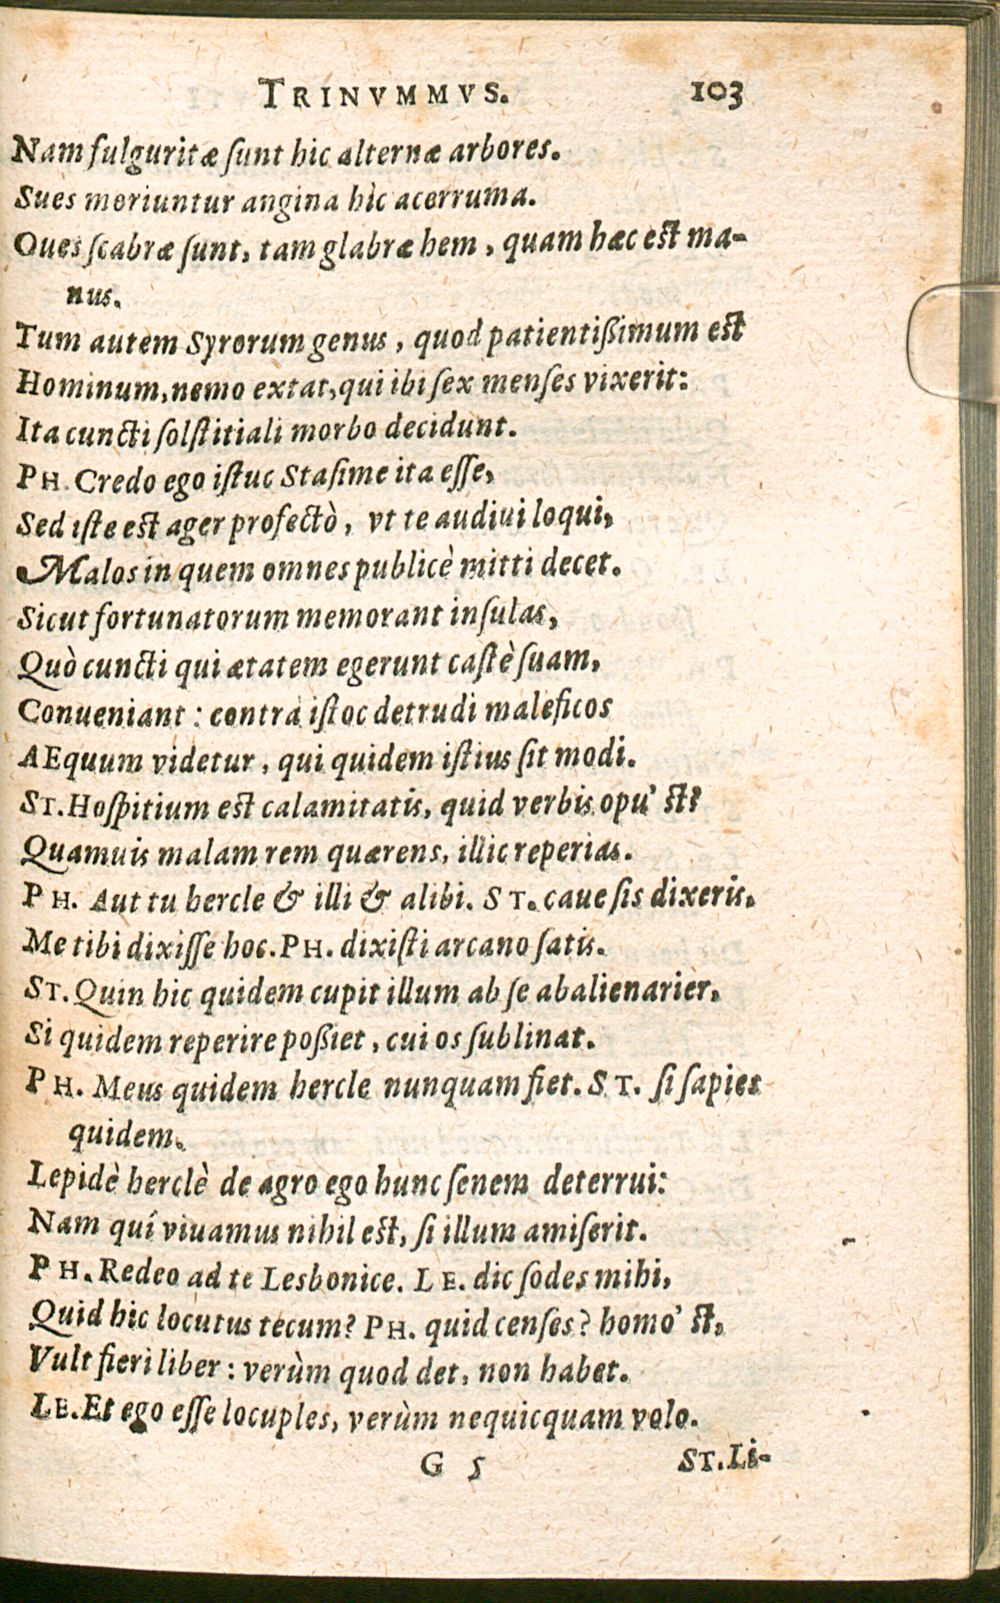 TRINVMMVS. 103
Nam fulguritæ ſunt hic alternæ arbores.
Sues moriuntur angina hìc acerruma.
Oues ſcabræ ſunt, tam glabræ hem, quam hæc eſt ma-
nus.
Tum autem Syrorum genus, quod patientißimum eſt
Hominum, nemo extat, qui ibi ſex menſes vixerit:
Ita cuncti ſolſtitiali morbo decidunt.
PH. Credo ego iſtuc Staſime ita eſſe,
Sed iſte eſt ager profectò, vt te audiui loqui,
Malos in quem omnes publicè mitti decet.
Sicut fortunatorum memorant inſulas,
Quò cuncti qui ætatem egerunt caſtè ſuam,
Conueniant: contrà iſtoc detrudi maleficos
AEquum videtur, qui quidem iſtius ſit modi.
ST. Hoſpitium eſt calamitatis, quid verbis opu' ſt?
Quamuis malam rem quærens, illic reperias.
PH. Aut tu hercle & illi & alibi. ST. caue ſis dixeris,
Me tibi dixiſſe hoc. PH. dixiſti arcano ſatis.
ST. Quin hic quidem cupit illum ab ſe abalienarier,
Si quidem reperire poßiet, cui os ſublinat.
PH. Meus quidem hercle nunquam fiet. ST. ſi ſapies
quidem.
Lepidè herclè de agro ego hunc ſenem deterrui:
Nam quí viuamus nihil eſt, ſi illum amiſerit.
PH. Redeo ad te Lesbonice. LE. dic ſodes mihi,
Quid hic locutus tecum? PH. quid cenſes? homo' ſt,
Vult fieri liber: verùm quod det, non habet.
LE. Et ego eſſe locuples, verùm nequicquam volo.
G 5 ST. Li-